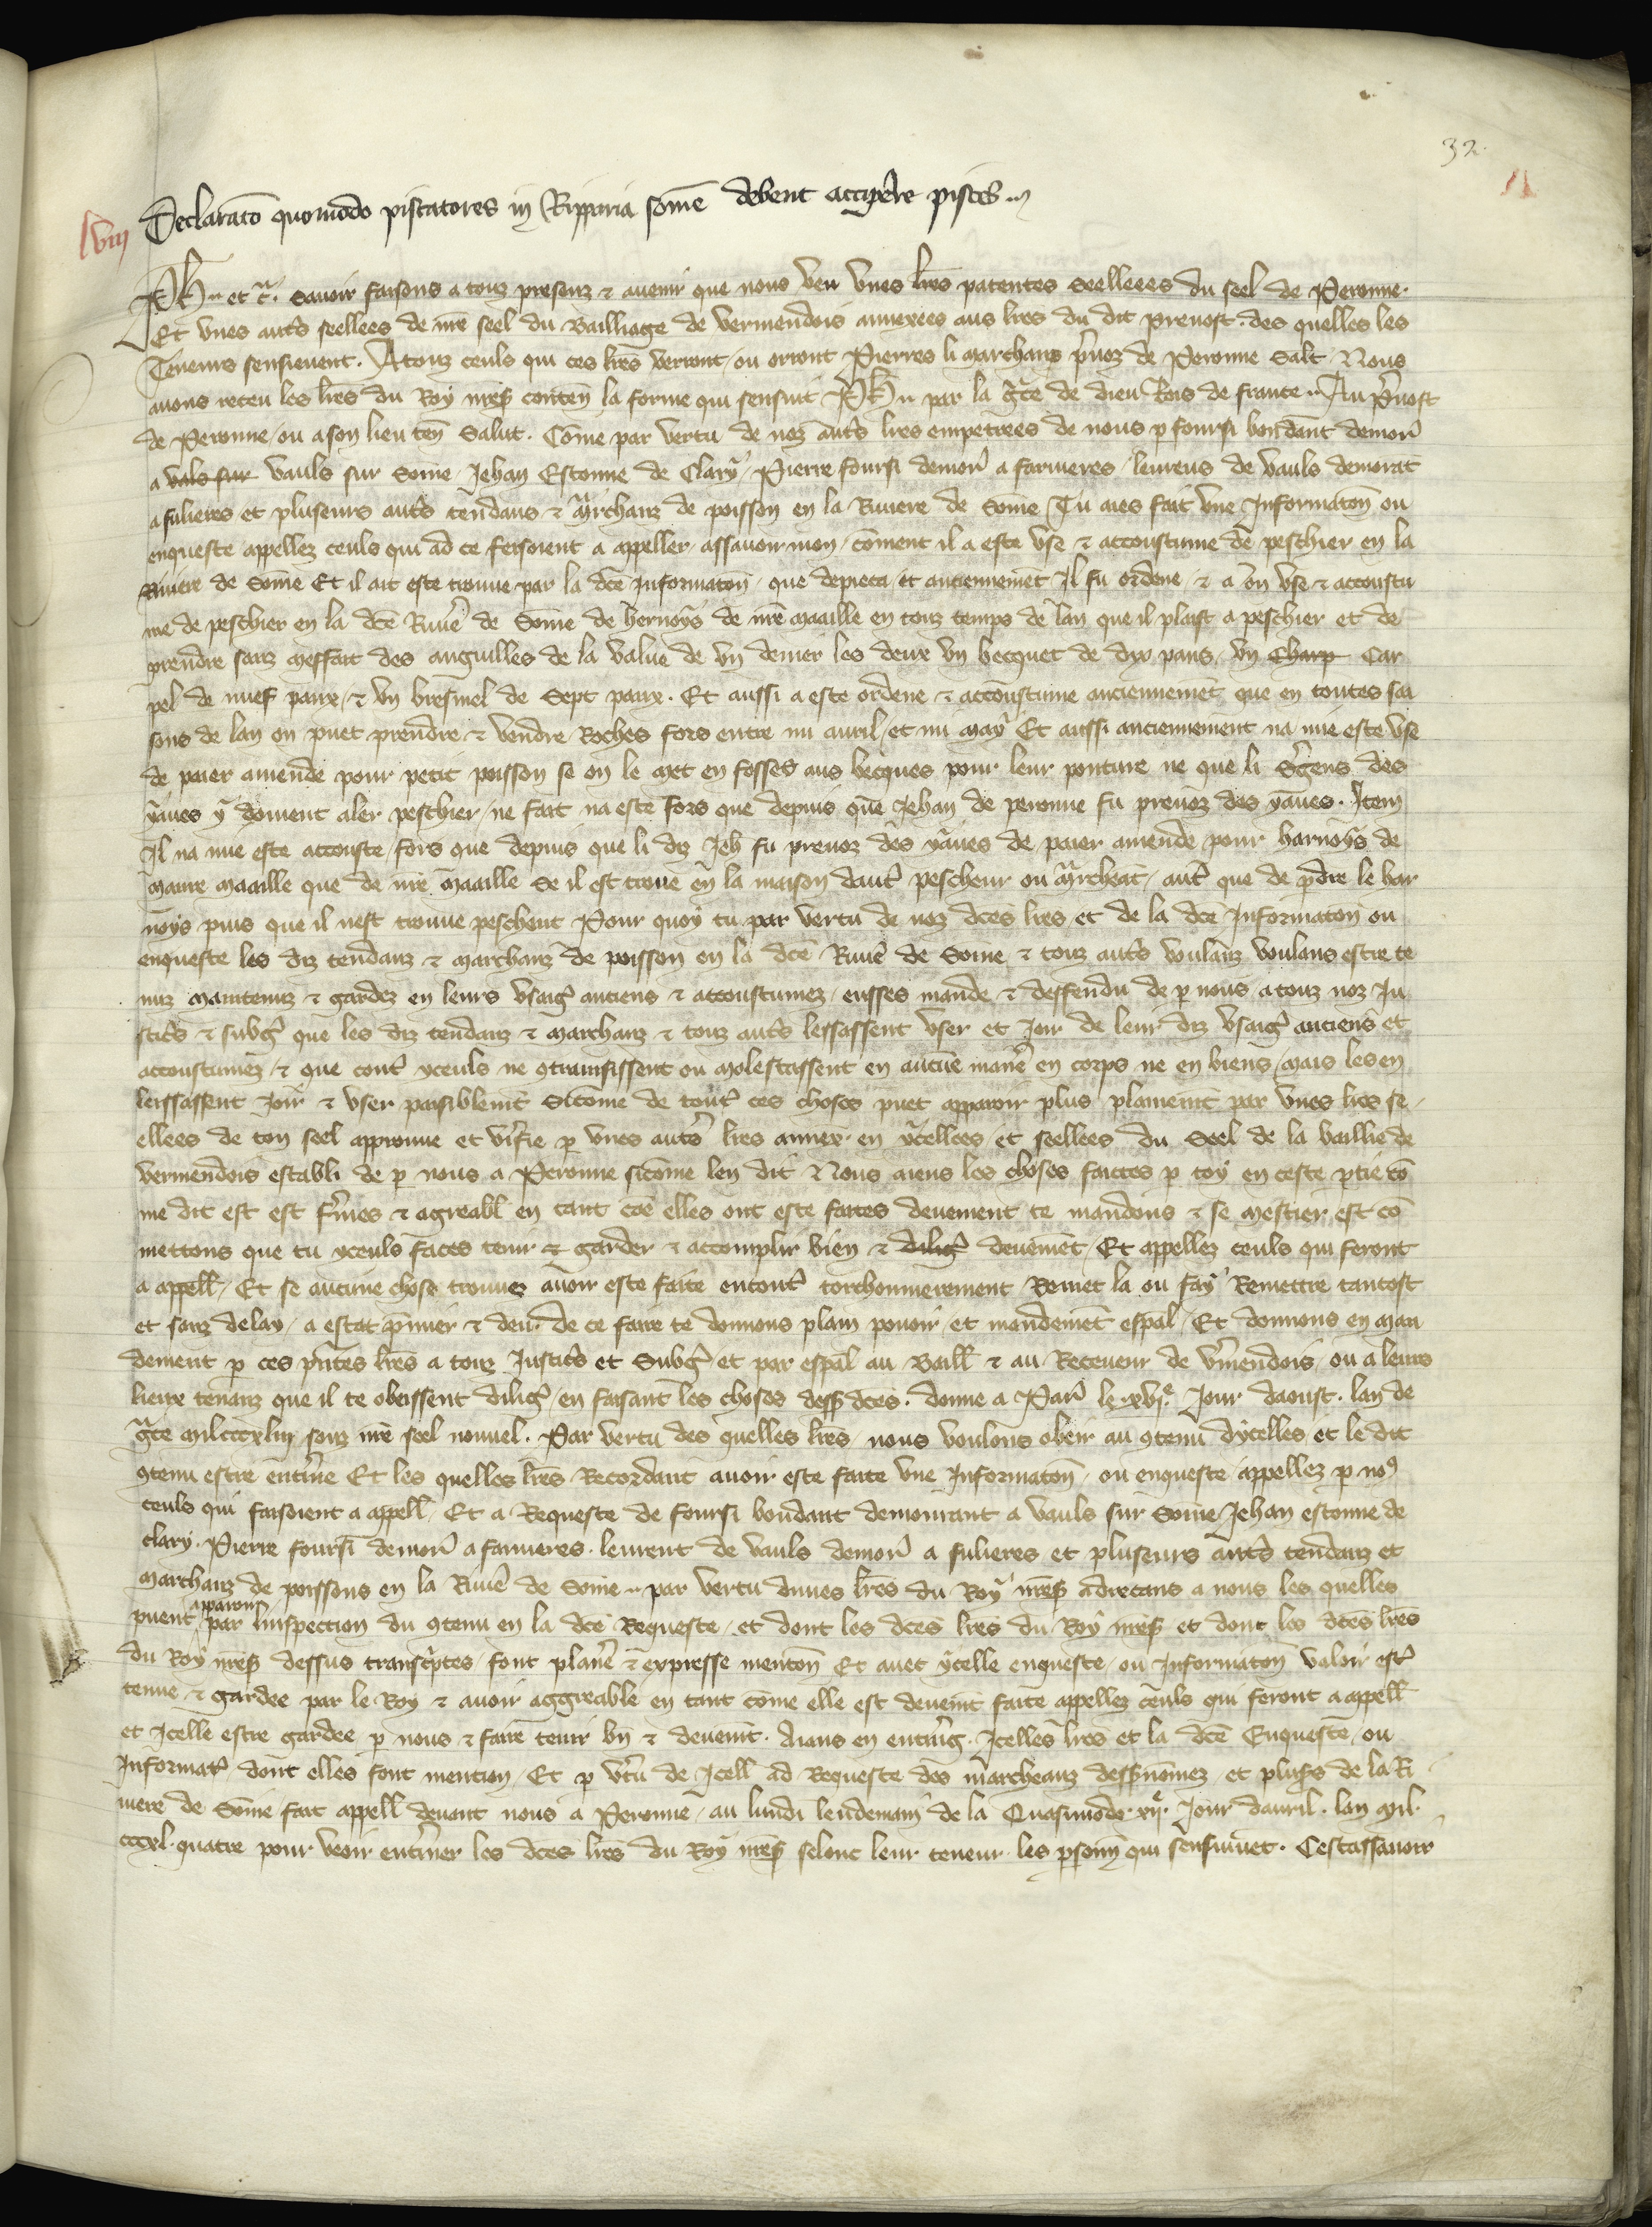 32.
lviij Declaratō quomodo piscatores in Ripparia somē debent accipere pisces
Ph et c̄. Savoir faisons a touz presenz & avenir que nous veu vnes lrēs patentes Seelleees du seel de Peronne.
Et vnes autrēs seellees de nrē seel du Bailliage de vermendois annexees aus lrēs du dit prevost. des quelles les
Teneurs sensievent. A touz ceuls qui ces lrēs verront / ou orront Pierres li marchans pvoz de Peronne Salt / Nous
avons receu les lrēs du Roy nrēs contēn la forme qui sensuit Ph par la gc̄e de dieu Rois de france Au pvost
de Peronne / ou a son lieu ten̄ Salut. Cōme par vertu de noz autrēs lrēs empetrees de nous p foursi bondant demor̄
a vals sur vauls sur Some / Jehan Estonne de Clary / Pierre foursi demor̄ a farnieres / leurens de vauls demorāt
a fulieres et pluseurs autrēs tendans & mrchanz de poisson en la Riviere de Somē Tu aies fait vne Informatōn ou
enqueste appellez ceuls qui ad ce feisoient a appeller / assavoir mon / cōment il a este vse & accoustume de peschier en la
Riviere de Somē Et il ait este trouve par la dcē Informatōn / que depieca / et anciennemēt Il fu ordene / & a on vse & accoustu
me de peschier en la dcē Riuē de Somē de hernoys de nrē maaille en touz temps de lan que il plaist a peschier et de
prendre sanz meffait des anguilles de la value de vn denier les deux vn becquet de dys pans / vn Charp Car
pel de nuef paux / & vn bresmel de Sept paux. Et aussi a este ordene & accoustume anciennemēt que en toutes sai
sons de lan on puet prendre & vendre Roches fors entre mi avril / et mi may Et aussi anciennement na mie este vse
de paier amende pour petit poisson se on le met en fosses aus becques pour leur pouture ne que li Sgens des
yaues y doivent aler peschier / ne fait na este fors que depuis que Jehan de peronne fu prevoz des yaues. Item
Il na mie este accouste / fors que depuis que li diz Jeh fu prevoz des yaues de paier amende pour harnoys de
maure maaille que de nrē maaille Se il est trouē en la maison daut pescheur ou mrcheāt / aut que de pdre le har
noys puis que il nest trouve peschent Pour quoy tu par vertu de noz dcēs lrēs et de la dcē Informatōn ou
enqueste les diz tendanz & marchanz de poisson en la dcē Riuē de Some & touz autrēs voulanz voulans estre te
nuz maintenuz & gardez en leurs vsaigē anciens & accoustumez / eusses mande & deffendu de p nous a touz noz Ju
sticēs & subgē que les diz tendanz & marchanz & touz autrēs lessassent vser et Joir de leur diz vsaigē anciens et
accoustumez / & que cont yceuls ne 9trainsissent ou molestassent en aucūe maniē en corps ne en biens / mais les en
leissassent Joir & vser paisiblemt Sicōme de toutē ces choses puet apparoir plus plainemt par vnes lrēs se
ellees de ton seel approuve et vifie p vnes autrēs lrēs annex en ycellees / et seellees du Seel de la baillie de
vermendois establi de p nous a Peronne sicōme len dit Nous aiens les choses faictes p toy en ceste ptie cō
me dit est est fmes & agreabl en tant cōe elles ont este faites deuement te mandons & se mestier est cō
mettons que tu yceuls faces tenir & garder & accomplir bien & diligē deuemēt / Et appellez ceuls qui feront
a appell / Et se aucune chose trouvez avoir este faite encont torchonnierement Remet la ou fay Remettre tantost
et sanz delay / a estat pmier & deu. de ce faire te donnons plain povoir / et mandemēt espal / Et donnons en man
dement p ces pntes lrēs a touz Justicēs et Subgē / et par espal au Baill & au Receveur de vmendois / ou a leurs
lieux tenanz que il te obeissent diligē / en faisant les choses dess dcēs. donne a Par̄ le xvjᵉ Jour daoust. lan de
gc̄e milcccxliij souz nrē seel nouvel. Par vertu des quelles lrēs nous voulons obeir au 9tenu dycelles / et le dit
9tenu estre entine Et les quelles lrēs Recordant avoir este faite vne Informatōn ou enqueste appellez p no9
ceuls qui faisoient a appell / Et a Requeste de foursi bondant demourant a vauls sur Some / Jehan estonne de
clary. Pierre foursi demor̄ a farnieres. leurent de vauls demor̄ a fulieres et pluseurs autrēs tendanz et
marchanz de poissons en la Riuē de Some par vertu dunes lrēs du Roy nrēs adrecans a nous les quelles
puent apparoir par linspection du 9tenu en la dcē Requeste / et dont les dcēs lrēs du Roy nrēs et dont les dcēs lrēs
du Roy nrēs dessus transcptes / font plaine & expresse mentōn Et avec ycelle enqueste / ou Informatōn valoir estē
tenue & gardee par le Roy & avoir aggreable en tant cōme elle est deuemt faite appellez ceuls qui feront a appell
et Icelle estre gardee p nous & faire tenir bn & deuemt. Aians en entig. Icelles lrēs et la dcē Enqueste / ou
Informatē dont elles font mention / Et p vtu de Icell ad Requeste des marcheanz dessnomez et plusrs de la Ri
uiere de Some / fait appell devant nous a Peronne / au lundi lendemain de la Quasimodo xijᵉ Jour davril. lan mil
cccxl quatre pour veoir entiner les dcēs lrēs du Roy nrēs selonc leur teneur les psonn qui sensivēt. Cestassavoir